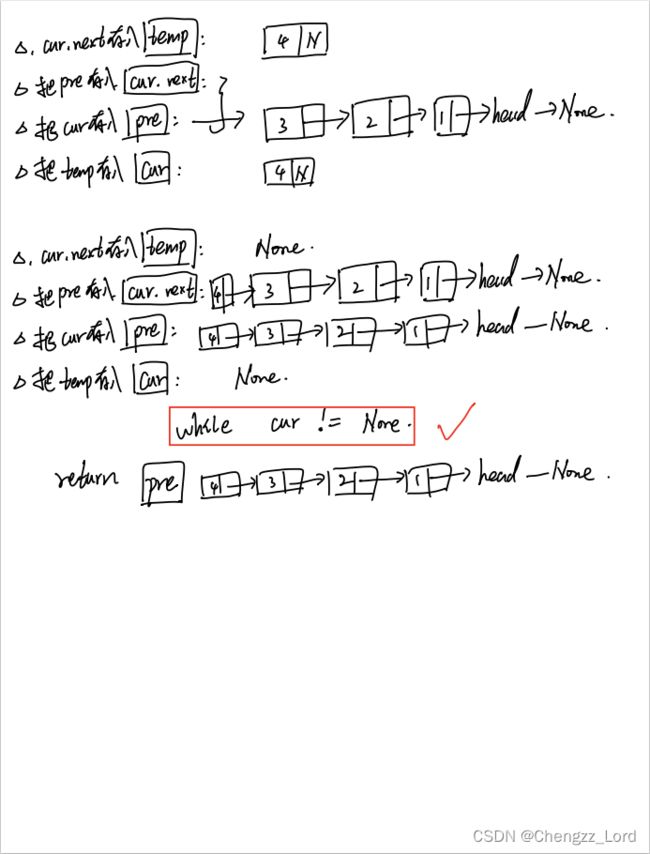 △. cur.next存入 temp : 4 N
△ 把pre存入 cur.next :
△ 把cur存入 pre : 3 2 1 head → None.
△ 把temp存入 cur : 4 N
△. cur.next存入 temp : None.
△ 把pre存入 cur.next : 4 3 2 1 head → None.
△ 把cur存入 pre : 4 3 2 1 head — None.
△ 把temp存入 cur : None.
while cur != None. ✓
return pre 4 3 2 1 head — None.
CSDN @Chengzz_Lord